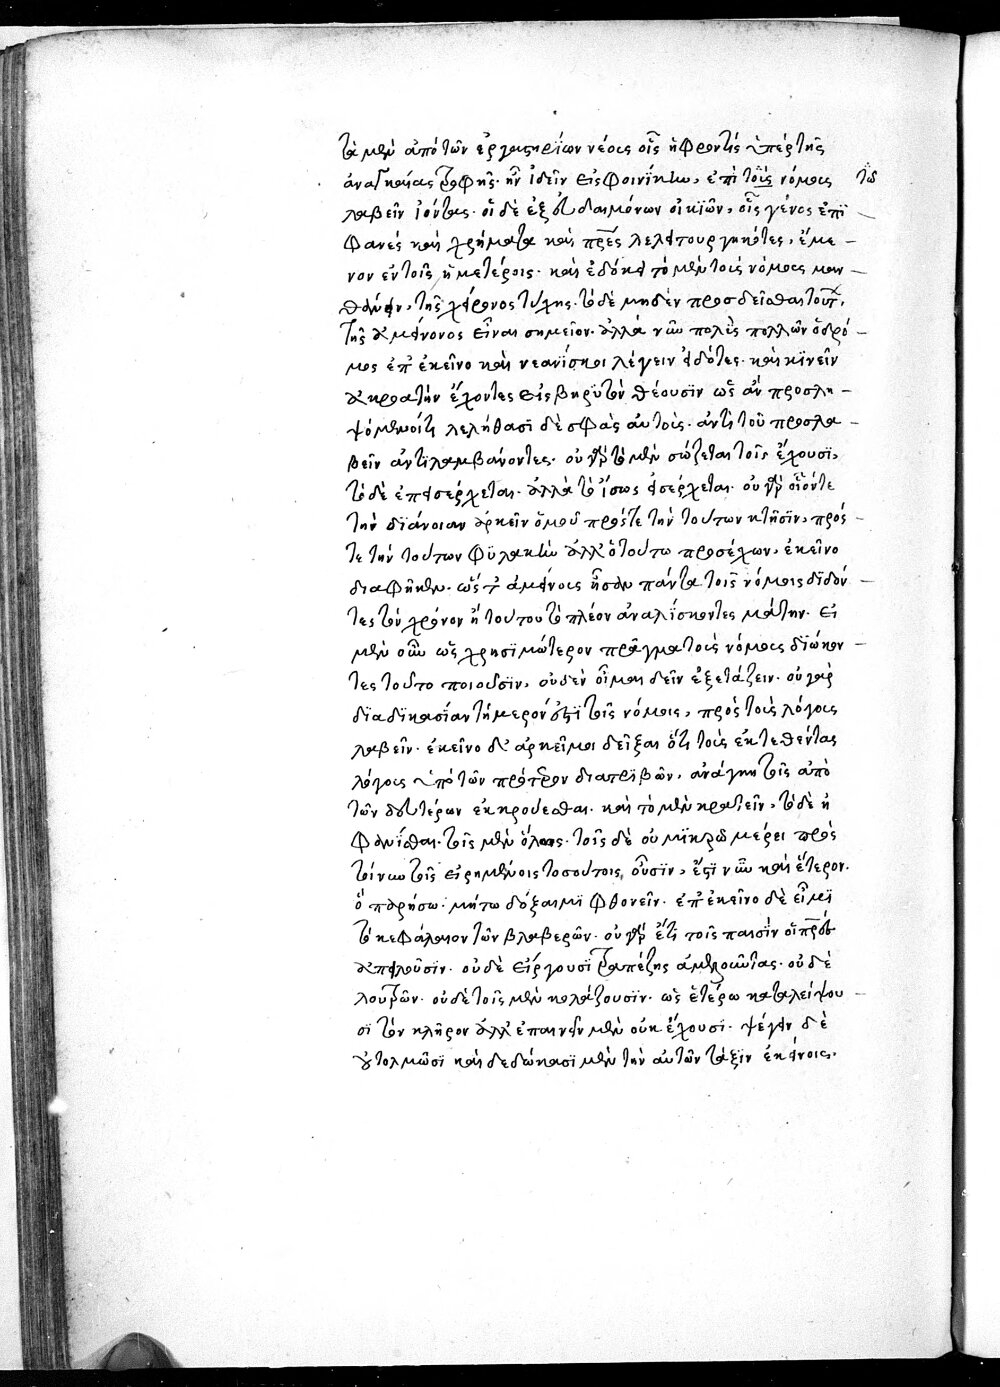 τὰ μὲν ἀπὸ τῶν ἐργαστηρίων νέους οἷς ἡ φροντὶς ὑπὲρ τῆς
ἀναγκαίας τροφῆς. ἦν ἰδεῖν εἰς φοινίκην, ἐπὶ τοὺς νόμους τῶ
λαβεῖν ἰόντας. οἱ δὲ ἐξ εὐδαιμόνων οἰκϊῶν, οἷς γένος ἐπϊ
φανὲς καὶ χρήματα καὶ πρες λελειτουργηκότες, ἔμε
νον ἐν τοῖς ἡμετέροις. καὶ ἐδόκει τὸ μὲν τοὺς νόμους μαν
θάνειν, τῆς χείρονος τύχης. τὸ δὲ μηδὲν προσδεῖσθαι τούτων,
τῆς ἀμείνονος εἶναι σημεῖον. ἀλλὰ νῦν πολὺς πολλῶν ὁ δρό
μος ἐπ' ἐκεῖνο καὶ νεανίσκοι λέγειν εἰδότες. καὶ κϊνεῖν
ἀκροατὴν ἔχοντες εἰς βηρϋτὸν θέουσϊν ὡς ἄν προσλη
ψόμενοί τι λελήθασϊ δὲ σφᾶς αὐτοὺς. ἀντὶ τοῦ προσλα
βεῖν ἀντϊλαμβάνοντες. οὐ γὰρ τὸ μὲν σώζεται τοῖς ἔχουσϊ,
τὸ δὲ ἐπεισέρχεται. ἀλλὰ τὸ ἴσως εἰσέρχεται. οὐ γὰρ οἷόντε
τὴν δϊάνοιαν ἀρκεῖν ὁμοῦ πρός τε τὴν τούτων κτῆσϊν, πρός
τε τὴν τούτων φϋλακὴν ἀλλ' ὁ τούτω προσέχων, ἐκεῖνο
διαφῆκεν. ὥς τ' ἀμείνους ἦσαν πάντα τοῖς νόμοις δϊδόν
τες τὸν χρόνον ἢ τούτου τὸ πλέον ἀναλίσκοντες μάτην. εἰ
μὲν οὖν ὡς χρησϊμώτερον πρᾶγμα τοὺς νόμους δϊώκον
τες τοῦτο ποιοῦσϊν, οὐδὲν οἶμαι δεῖν ἐξετάζειν. οὐ γὰρ
δϊαδϊκασίαν τήμερόν ἐστϊ τοῖς νόμοις, πρὸς τοὺς λόγους
λαβεῖν. ἐκεῖνο δ' ἀρκεῖ μοι δεῖξαι ὅτι τοὺς ἐκτεθέντας
λόγους ὑπὸ τῶν πρότερον διατριβῶν, ἀνάγκη τοῖς ἀπὸ
τῶν δευτέρων ἐκκρούεσθαι. καὶ τὸ μὲν κρατεῖν, τὸ δὲ ἡ
τοῖς μὲν ὅλοις. τοῖς δὲ οὐ μϊκρῶ μέρει πρὸς
τοίνυν τοῖς εἰρημένοις τοσούτοις οὖσϊν, ἔστϊ νῦν καὶ ἕτερον.
ὃ μήτω δόξαιμϊ φθονεῖν. ἐπ' ἐκεῖνο δὲ εἶμϊ
τὸ κεφάλαιον τῶν βλαβερῶν. οὐ γὰρ ἔτι τοῖς παισὶν οἱ πρὸς
ἀπειλοῦσϊν. οὐδὲ εἴργουσϊ τραπέζης ἀμελοῦντας. οὐδὲ
λουτρῶν. οὐδὲ τοῖς μὲν κολάζουσϊν. ὡς ἑτέρω καταλείψου
σϊ τὸν κλῆρον ἀλλ' ἐπαινεῖν μὲν οὐκ ἔχουσϊ. ψέγειν δὲ
οὐ τολμῶσϊ καὶ δεδώκασϊ μὲν τὴν αὐτῶν τάξϊν ἐκείνοις.